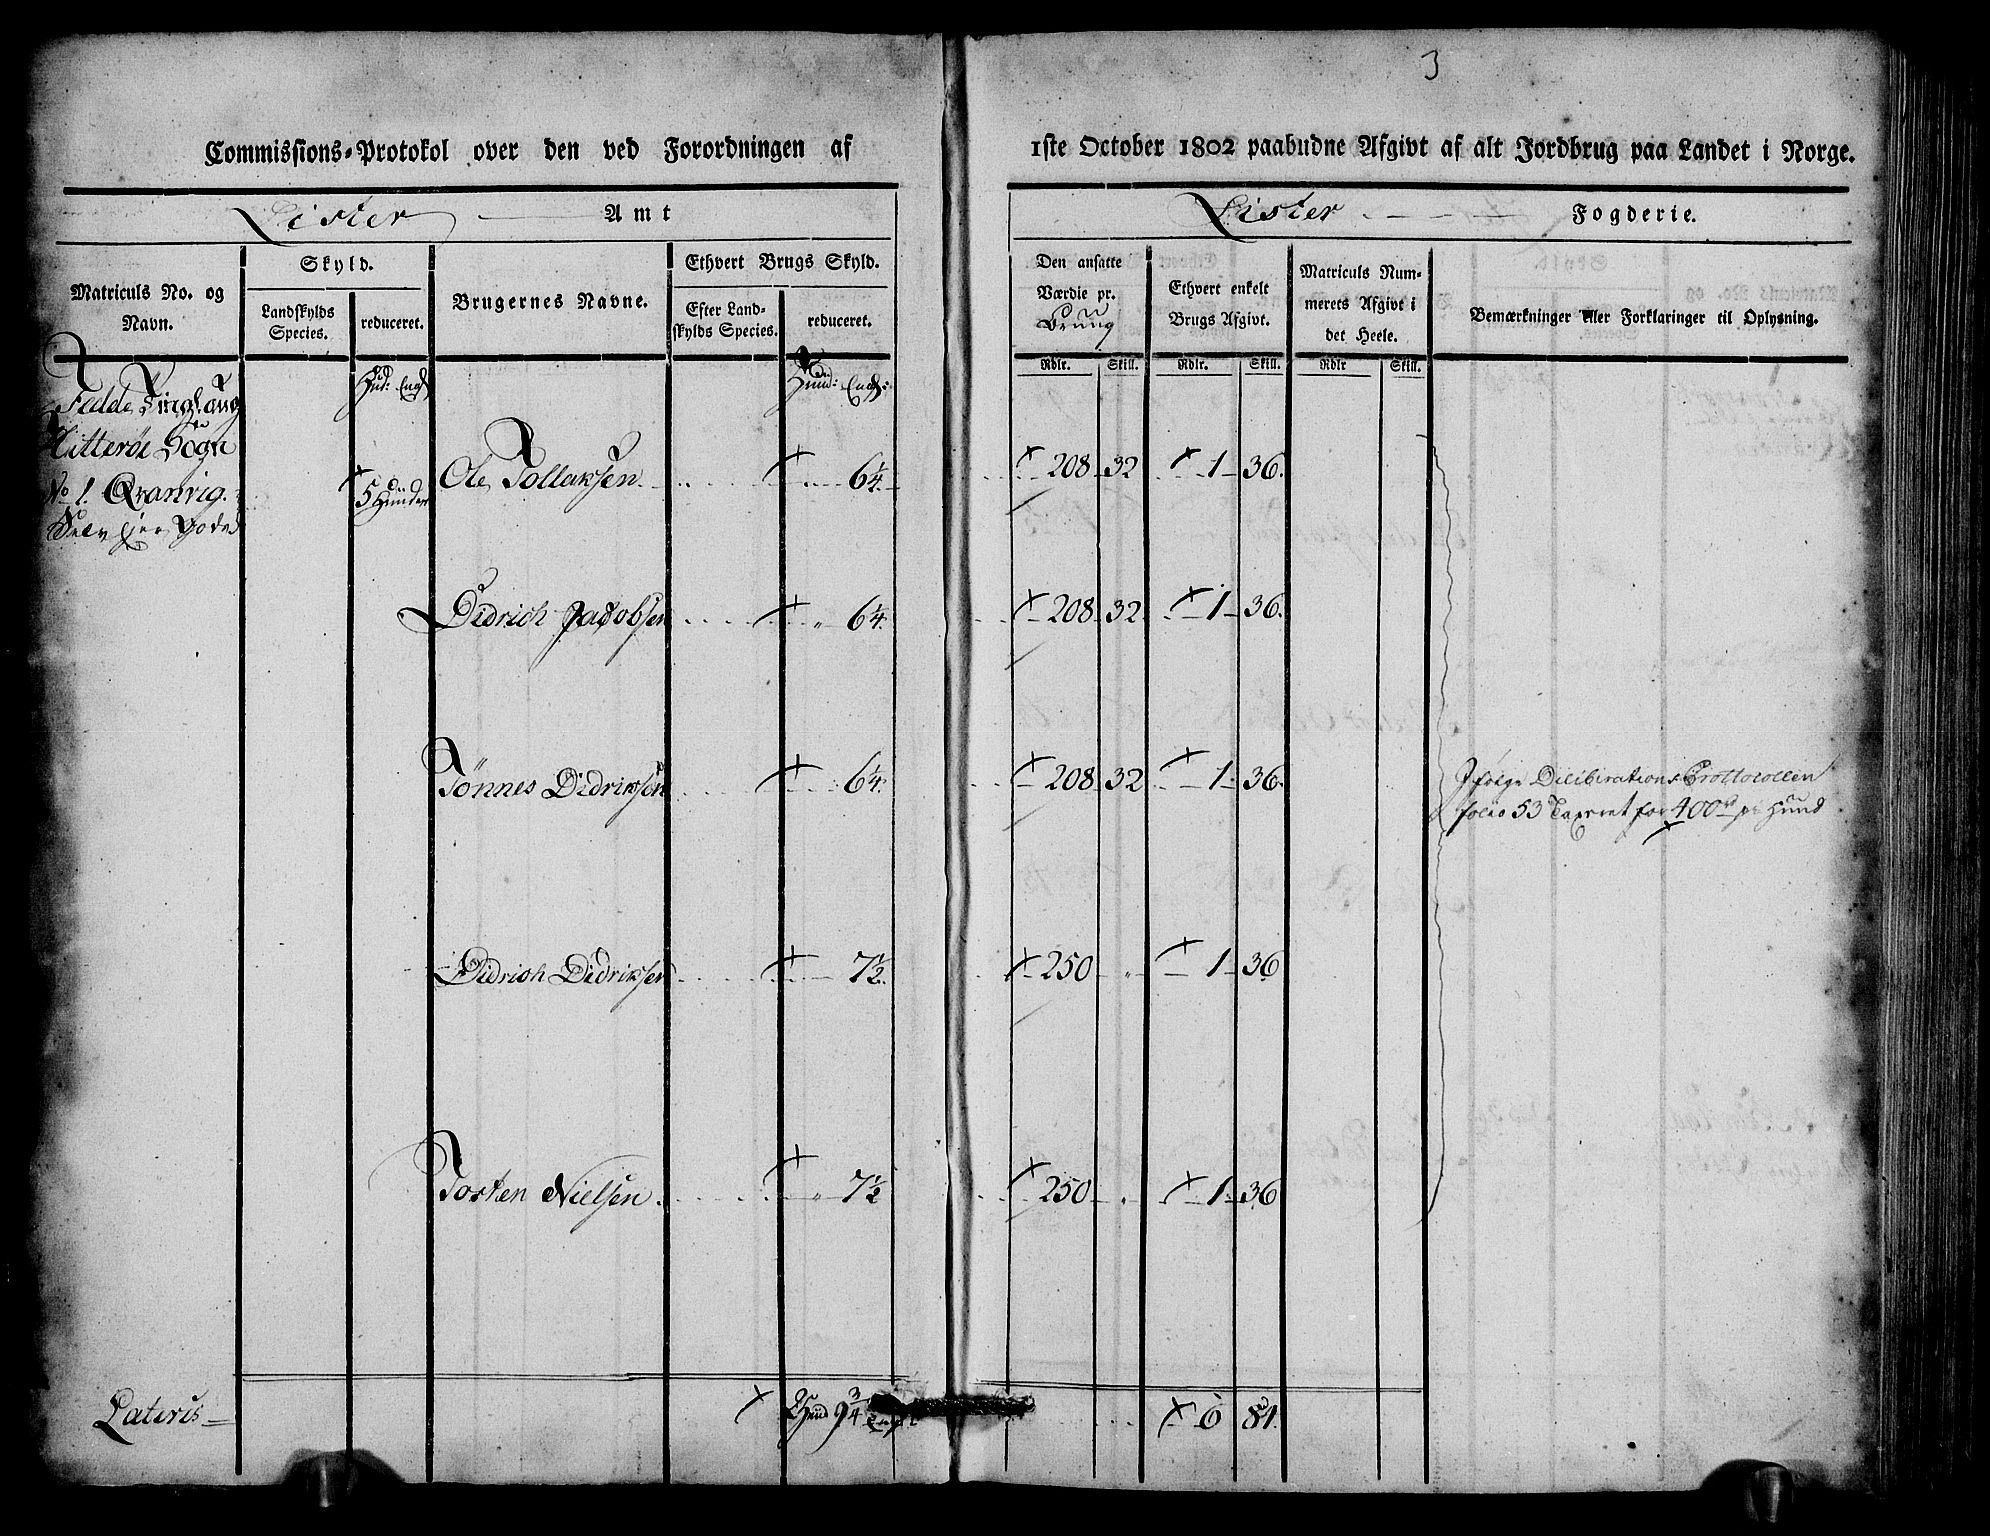 3
Commissions-Protokol over den ved Forordningen af 1ste October 1802 paabudne Afgivt af alt Jordbrug paa Landet i Norge.
Lister Amt
Lister Fogderie.
Matriculs No. og Navn.
Skyld.
Landskylds Species.
reduceret.
Brugernes Navne.
Ethvert Brugs Skyld.
Efter Landskylds Species.
reduceret.
Den ansatte Værdie pr. Brug
Ethvert enkelt Brugs Afgivt.
Matriculs Nummerets Afgivt i det Heele.
Bemærkninger eller Forklaringer til Oplysning.
Rdlr. Skill. Rdlr. Skill. Rdlr Skill.
Fedde Tinglaug
Hitterøe Sogn
No 1. Qvanvig.
Selv Ejer Gods
Hud: Eng:
5 Huder
Hud: Eng:
Ole Tollaksen 6¼ 208 32 1 36.
Didrich Jacobsen 6¼ 208 32 1 36.
Tönnes Didriksen 6¼ 208 32 1 36.
Ifølge Deliberations Prottocollen
folio 53 Taxeret for 400 rd pr Hud
Didrich Didriksen 7½ 250 1 36
Torken Nielsen 7½ 250 1 36
Lateris 9¾ 6 84.